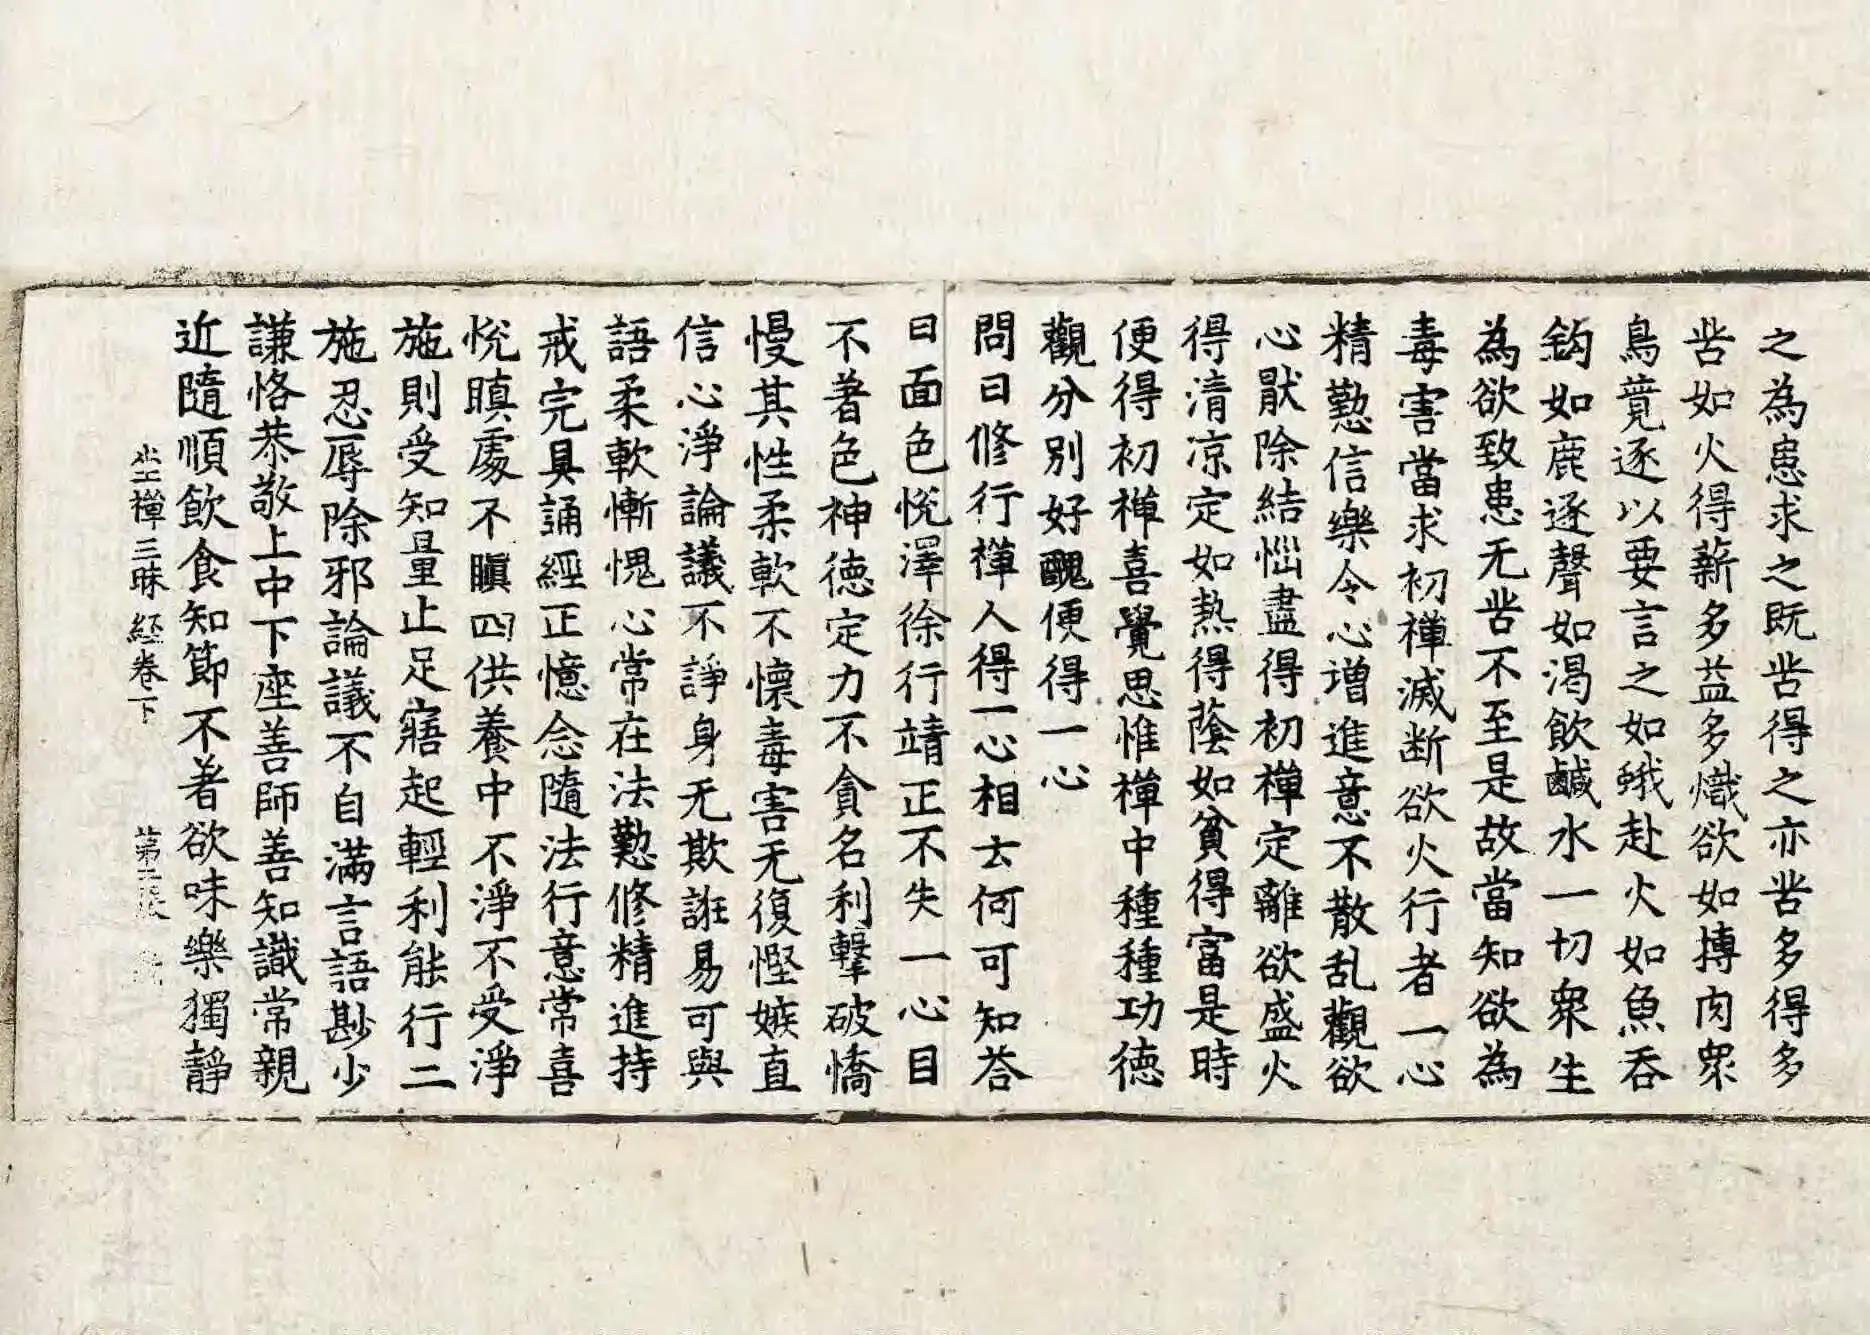 之為患求之既苦得之亦苦多得多
苦如火得薪多益多熾欲如摶肉眾
鳥競逐以要言之如蛾赴火如魚吞
鈎如鹿逐聲如渴飲鹹水一切眾生
為欲致患无苦不至是故當知欲為
毒害當求初禪滅断欲火行者一心
精懃信樂令心增進意不散乱觀欲
心猒除結惱盡得初禪定離欲盛火
得清涼定如熱得蔭如貧得富是時
便得初禪喜覺思惟禪中種種功德
觀分別好醜便得一心
問曰修行禪人得一心相云何可知荅
曰面色悅澤徐行靖正不失一心目
不著色神德定力不貪名利擊破憍
慢其性柔軟不懷毒害无復慳嫉直
信心淨論議不諍身无欺誑易可與
語柔軟慚愧心常在法懃修精進持
戒完具誦經正憶念隨法行意常喜
悅瞋處不瞋四供養中不淨不受淨
施則受知量止足寤起輕利能行二
施忍辱除邪論議不自滿言語尠少
謙恪恭敬上中下座善師善知識常親
近隨順飲食知節不著欲味樂獨靜
坐禪三昧經卷下 第二張